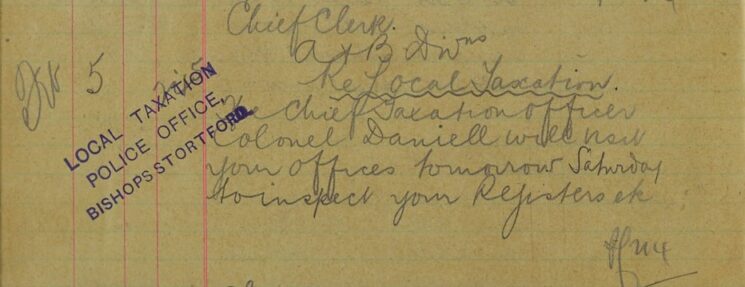 Chief Clerk.
A & B Divns
Re Local Taxation.
5
The Chief Taxation Officer
Colonel Daniell will visit
your offices tomorrow Saturday
to inspect your Registers etc
LOCAL TAXATION
POLICE OFFICE,
BISHOPS STORTFORD